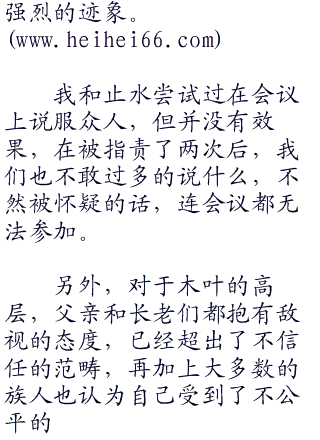 强烈的迹象。
(www.heihei66.com)
我和止水尝试过在会议
上说服众人，但并没有效
果，在被指责了两次后，我
们也不敢过多的说什么，不
然被怀疑的话，连会议都无
法参加。
另外，对于木叶的高
层，父亲和长老们都抱有敌
视的态度，已经超出了不信
任的范畴，再加上大多数的
族人也认为自己受到了不公
平的